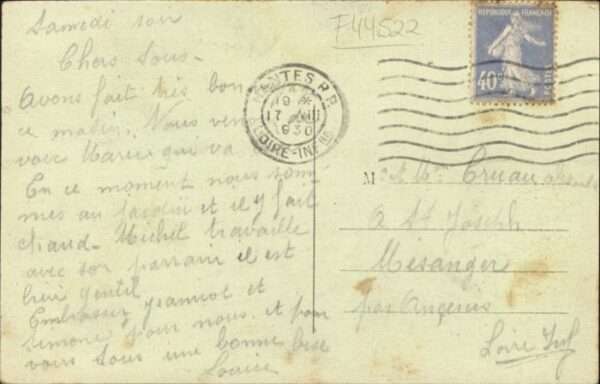 Samedi soir
F44522
Chers Tous -
Avons fait très bon
ce matin. Nous
voir Marie qui va
En ce moment nous som
mes au jardin et il y fait
chaud - Michel travaille
avec son parrain il est
bien gentil
Embrasser Jeannot et
Simone pour nous. et pour
vous Tous une bonne bise
Louise
NANTES R.P.
19 H
17
1930
LOIRE-INFRE
REPUBLIQUE FRANÇAISE
40c
POSTES
M et Me Cruau
à St Joseph
Mésanger
par Ancenis
Loire Inf